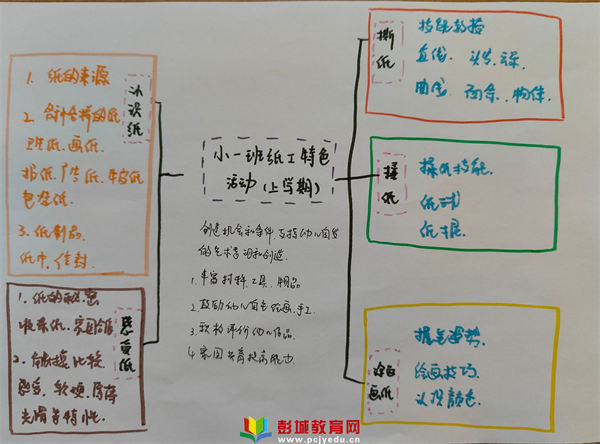 认识纸
1. 纸的来源
2. 各种各样的纸
卫生纸.画纸.
报纸.广告纸.牛皮纸
包装纸.
3. 纸制品.
纸巾.信封.
感受纸
1. 纸的秘密
收集纸.家园合作
2. 触摸.比较.
感受.软硬.厚薄
光滑等特性.
小一班纸工特色
活动(上学期)
创造机会和条件,支持幼儿自发
的艺术表现和创造.
1. 丰富材料.工具.物品
2. 鼓励幼儿自主绘画.手工
3. 欣赏评价幼儿作品.
4. 家园共育提高能力
撕纸
技能教授
直线.头发.
曲线.面条.物体.
揉纸
揉纸技能.
纸球
纸棍.
绘画纸
握笔姿势.
绘画技巧.
认识颜色.
彭城教育网
www.pcjyedu.cn